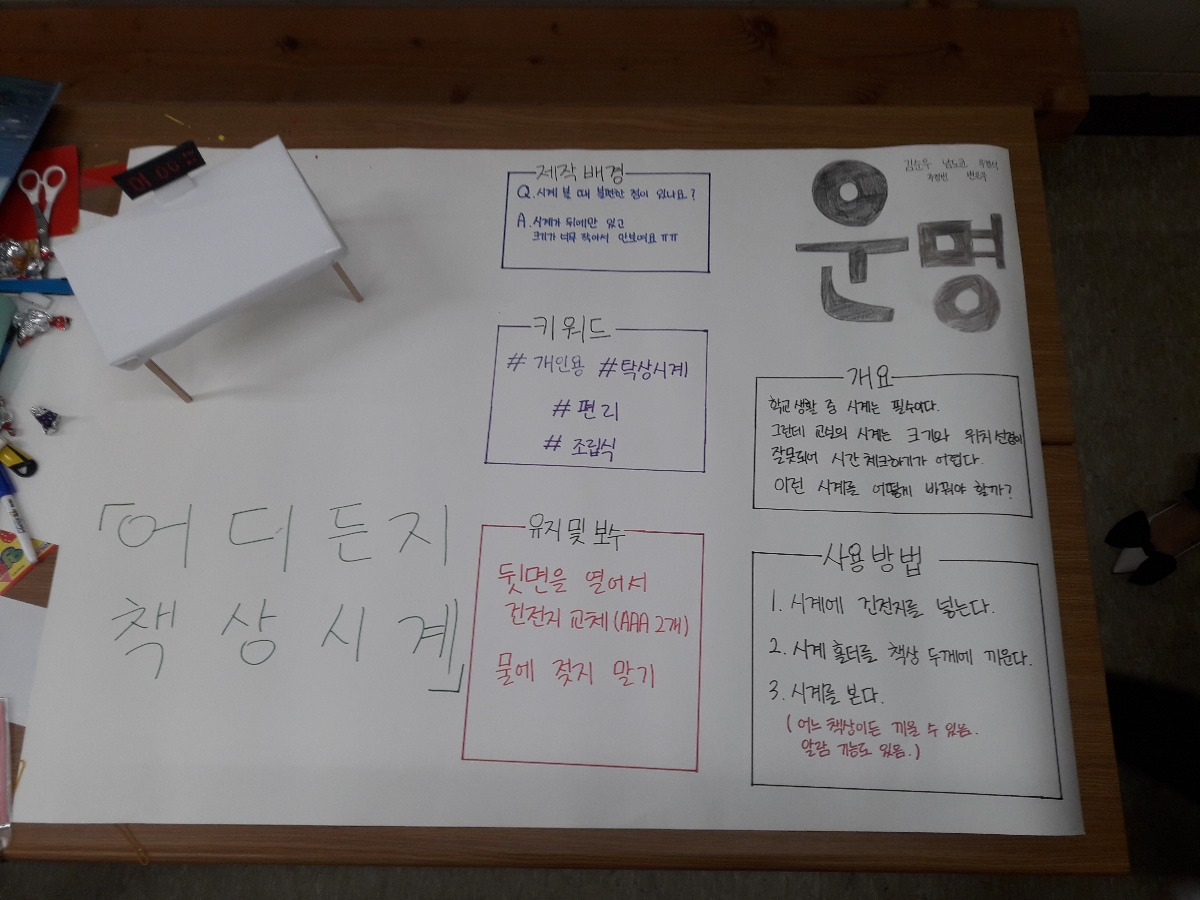 제작 배경
Q. 시계 볼 때 불편한 점이 있나요?
A. 시계가 뒤에만 있고
크기가 너무 작아서 안보여요 ㅠㅠ
운명
키워드
# 개인용 # 탁상시계
# 편리
# 조립식
개요
학교생활 중 시계는 필수이다.
그런데 교실의 시계는 크기와 위치 선정이
잘못되어 시간 체크하기가 어렵다.
이런 시계를 어떻게 바꿔야 할까?
「어디든지
책상시계」
유지 및 보수
뒷면을 열어서
건전지 교체 (AAA 2개)
물에 젖지 말기
사용 방법
1. 시계에 건전지를 넣는다.
2. 시계 홀터를 책상 두께에 끼운다.
3. 시계를 본다.
(어느 책상이든 끼울 수 있음.
알람 기능도 있음.)